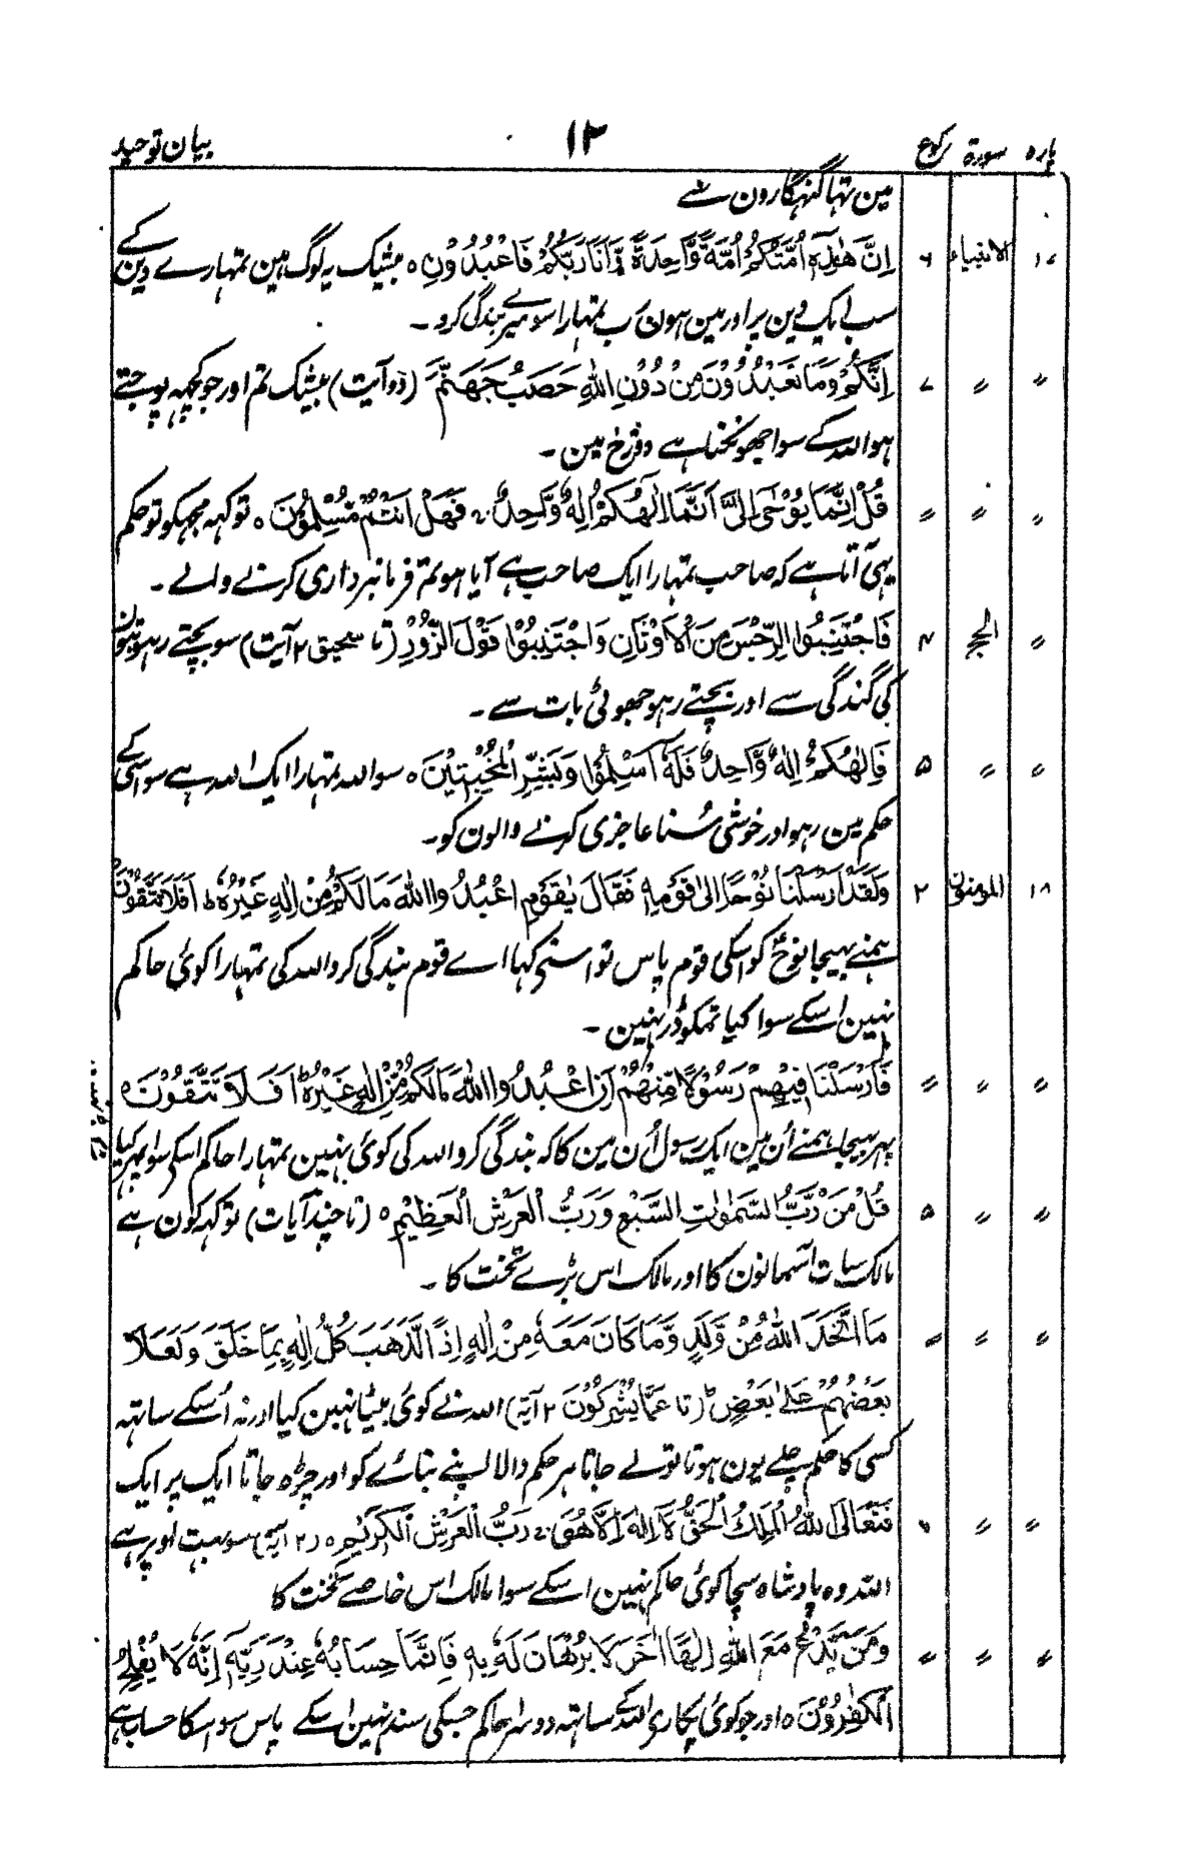 پارہ سورۃ رکوع ۱۳ بیان توحید
مین تہا گنہگارون سے
۱۷ الانبیاء ۶ اِنَّ هٰذِهٖٓ اُمَّتُكُمْ اُمَّةً وَّاحِدَةً وَّاَنَا رَبُّكُمْ فَاعْبُدُوْنِ ٥ بیشک یہ لوگ ہین تمہارے دین کے
سب ایک دین پر اور مین ہون رب تمہارا سو میرے بندگی کرو ۔
〃 〃 ۷ اِنَّكُمْ وَمَا تَعْبُدُوْنَ مِنْ دُوْنِ اللّٰهِ حَصَبُ جَهَنَّمَ (دو آیت) بیشک تم اور جو کچہہ پوجتے
ہو اللہ کے سوا جھونکنا ہے دوزخ مین ۔
〃 〃 〃 قُلْ اِنَّمَا يُوْحٰٓى اِلَىَّ اَنَّمَآ اِلٰهُكُمْ اِلٰهٌ وَّاحِدٌ ۚ فَهَلْ اَنْتُمْ مُّسْلِمُوْنَ ٥ تو کہہ مجہکو تو حکم
یہی آتا ہے کہ صاحب تمہارا ایک صاحب ہے آیا ہو تم فرمانبرداری کرنے والے ۔
〃 الحج ۴ فَاجْتَنِبُوا الرِّجْسَ مِنَ الْاَوْثَانِ وَاجْتَنِبُوْا قَوْلَ الزُّوْرِ (تا سحیق ۲ آیت) سو بچتے رہو بتون
کی گندگی سے اور بچتے رہو جھوٹی بات سے ۔
〃 〃 ۵ فَاِلٰهُكُمْ اِلٰهٌ وَّاحِدٌ فَلَهٗٓ اَسْلِمُوْا وَبَشِّرِ الْمُخْبِتِيْنَ ٥ سو اللہ تمہارا ایک اللہ ہے سو اسی کے
حکم مین رہو اور خوشی سُنا عاجزی کرنے والون کو ۔
۱۸ المومنون ۲ وَلَقَدْ اَرْسَلْنَا نُوْحًا اِلٰى قَوْمِهٖ فَقَالَ يٰقَوْمِ اعْبُدُوا اللّٰهَ مَا لَكُمْ مِّنْ اِلٰهٍ غَيْرُهٗ ط اَفَلَا تَتَّقُوْنَ
ہمنے بہیجا نوح کو اسکی قوم پاس تو اسنے کہا اے قوم بندگی کرو اللہ کی تمہارا کوئی حاکم
نہین اسکے سوا کیا تمکو ڈر نہین ۔
〃 〃 〃 فَاَرْسَلْنَا فِيْهِمْ رَسُوْلًا مِّنْهُمْ اَنِ اعْبُدُوا اللّٰهَ مَا لَكُمْ مِّنْ اِلٰهٍ غَيْرُهٗ ط اَفَلَا تَتَّقُوْنَ ٥
پہر بہیجا ہمنے اُن مین ایک رسول اُن مین کا کہ بندگی کرو اللہ کی کوئی نہین تمہارا حاکم اسکے سوا پہر کیا
〃 〃 ۵ قُلْ مَنْ رَّبُّ السَّمٰوٰتِ السَّبْعِ وَرَبُّ الْعَرْشِ الْعَظِيْمِ ٥ (تا چند آیات) تو کہہ کون ہے
مالک سات آسمانون کا اور مالک اس بڑے تخت کا ۔
〃 〃 〃 مَا اتَّخَذَ اللّٰهُ مِنْ وَّلَدٍ وَّمَا كَانَ مَعَهٗ مِنْ اِلٰهٍ اِذًا لَّذَهَبَ كُلُّ اِلٰهٍۭ بِمَا خَلَقَ وَلَعَلَا
بَعْضُهُمْ عَلٰى بَعْضٍ ط (تا عَمَّا يُشْرِكُوْنَ ۲ آیۃ) اللہ نے کوئی بیٹا نہین کیا اور نہ اُسکے ساتہہ
کسی کا حکم چلے یون ہوتا تو لے جاتا ہر حکم والا اپنے بنائے کو اور چڑہ جاتا ایک پر ایک
〃 〃 ۶ فَتَعٰلَى اللّٰهُ الْمَلِكُ الْحَقُّ لَآ اِلٰهَ اِلَّا هُوَ ۚ رَبُّ الْعَرْشِ الْكَرِيْمِ ٥ (۲ آیۃ) سو بہت اوپر ہے
اللہ وہ بادشاہ سچا کوئی حاکم نہین اسکے سوا مالک اس خاصے تخت کا
〃 〃 〃 وَمَنْ يَّدْعُ مَعَ اللّٰهِ اِلٰهًا اٰخَرَ لَا بُرْهَانَ لَهٗ بِهٖ فَاِنَّمَا حِسَابُهٗ عِنْدَ رَبِّهٖ اِنَّهٗ لَا يُفْلِحُ
الْكٰفِرُوْنَ ٥ اور جو کوئی پکارے اللہ کے ساتہہ دوسرا حاکم جسکی سند نہین اسکے پاس سو اسکا حساب ہے